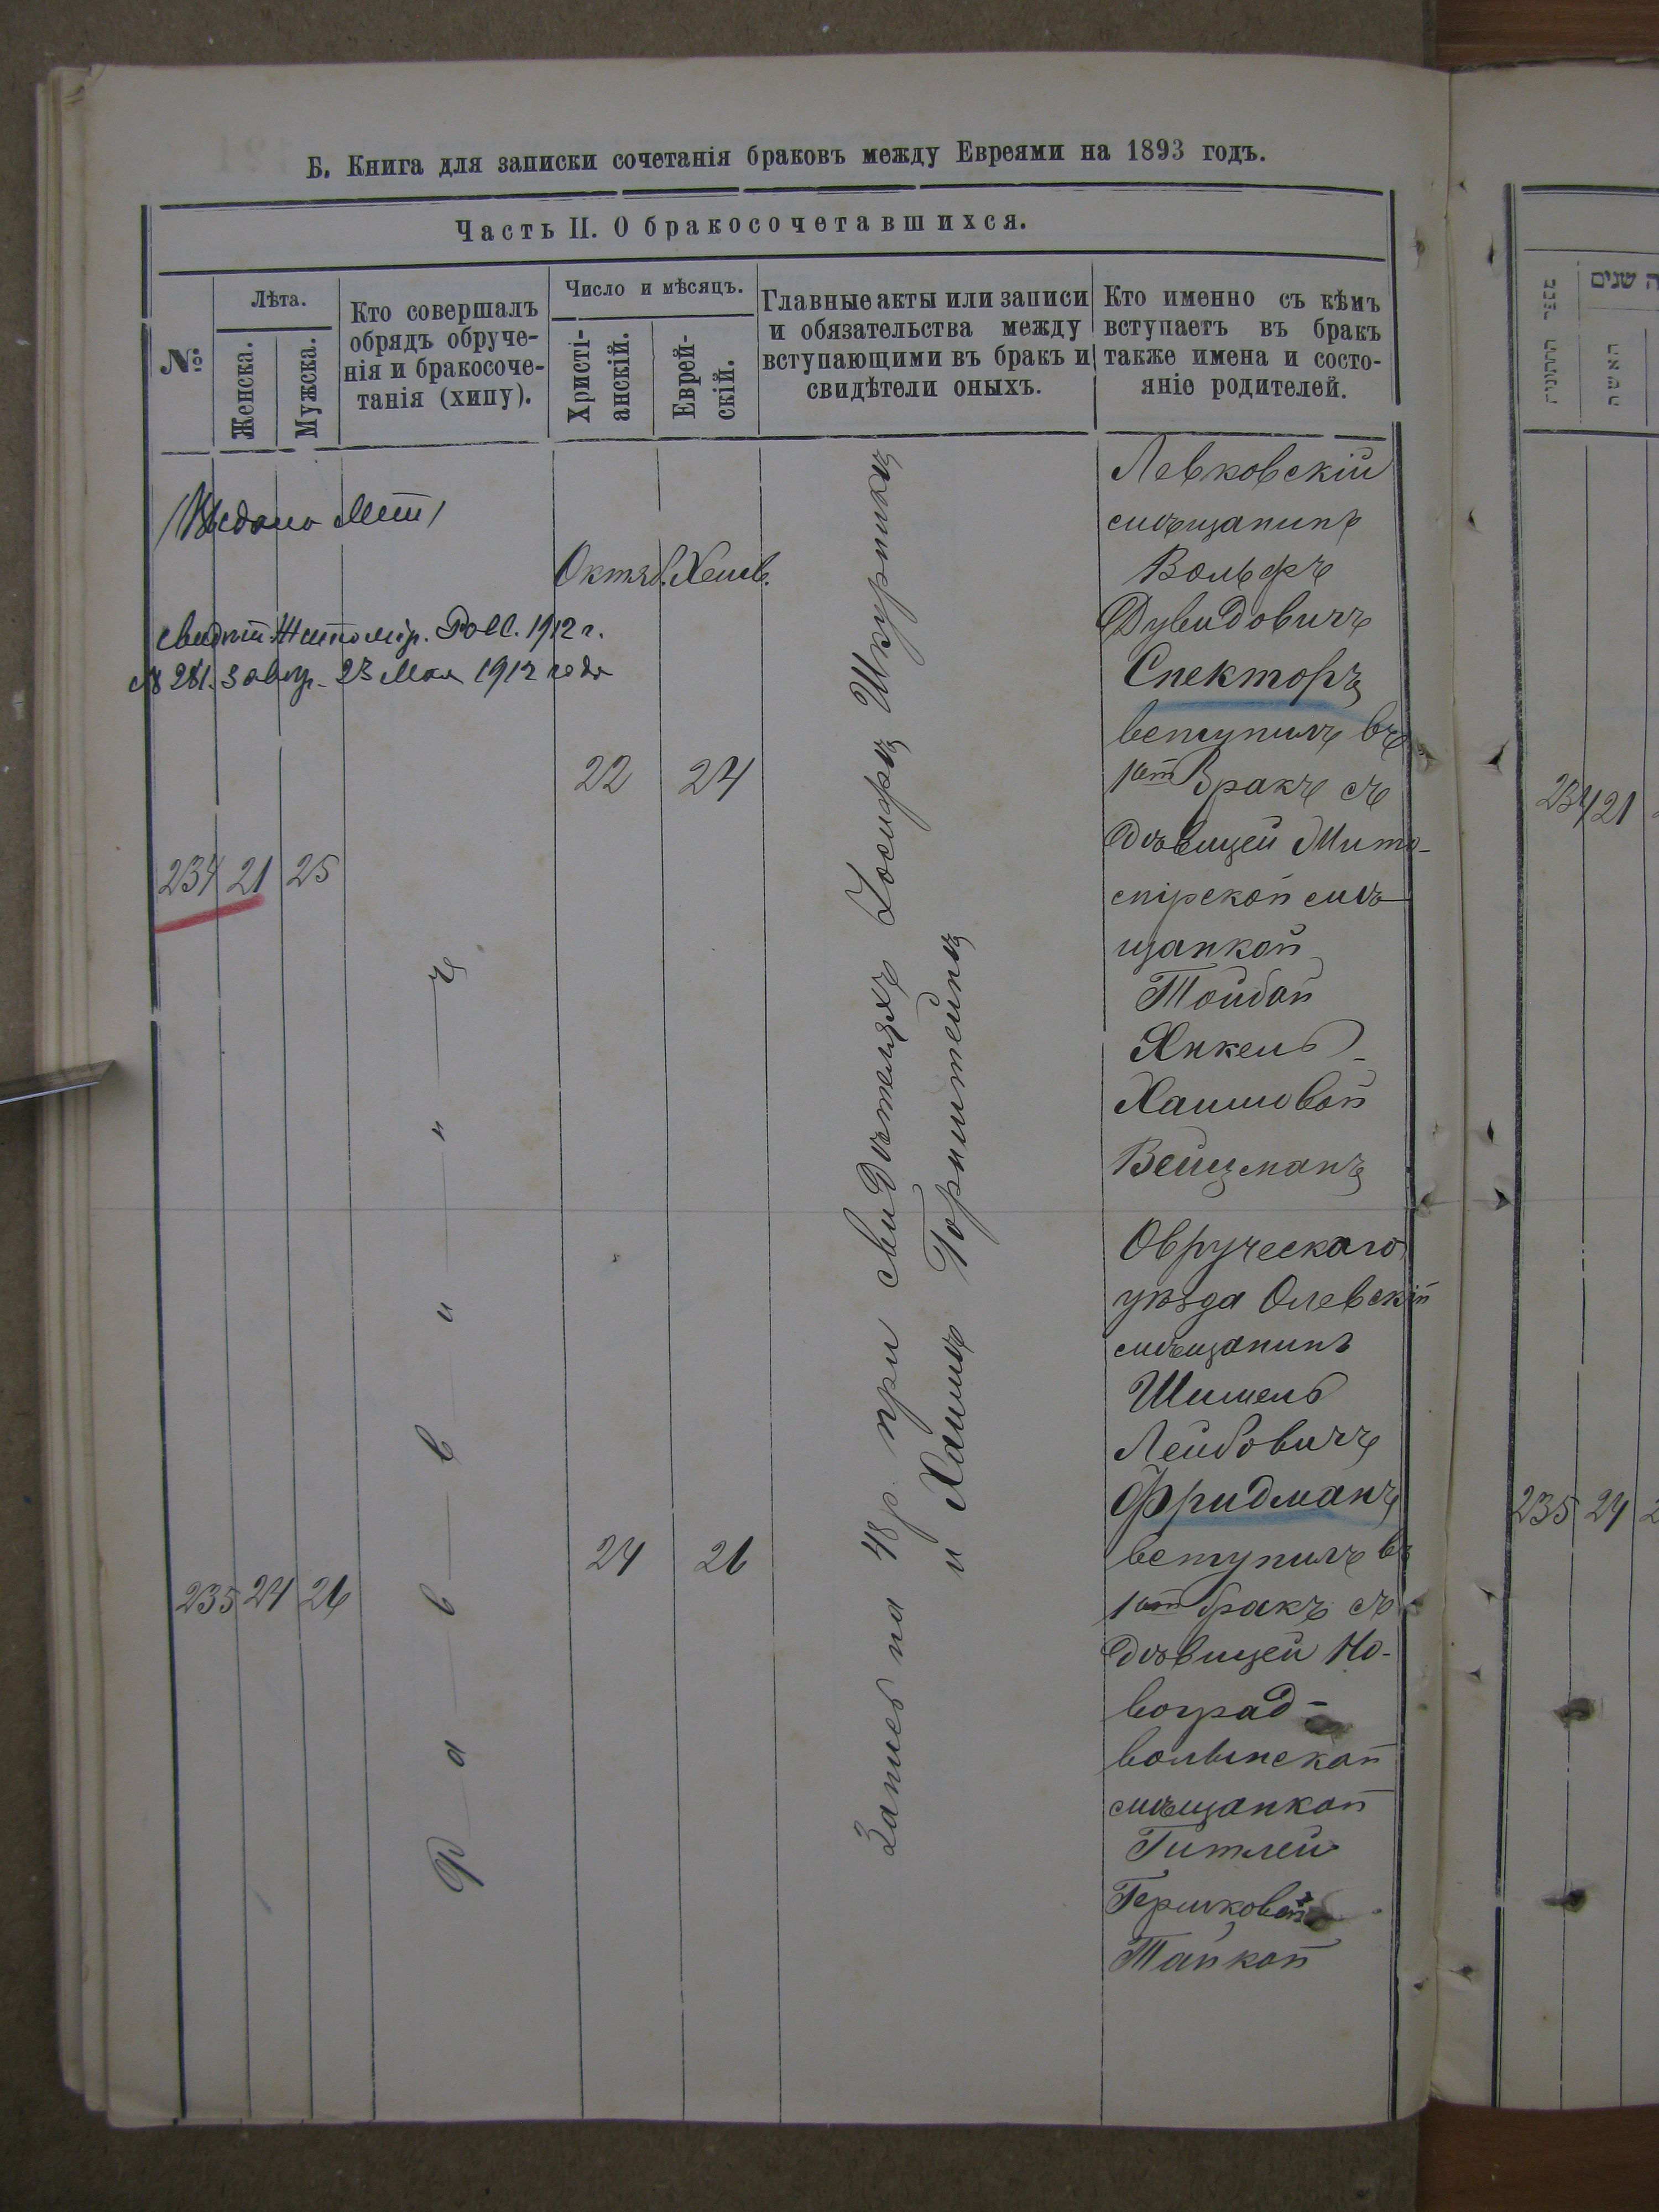 Б. Книга для записки сочетанія браковъ между Евреями на 1893 годъ.
Часть II. О бракосочетавшихся.
№
Лѣта.
Женска.
Мужска.
Кто совершалъ
обрядъ обруче-
нія и бракосоче-
танія (хипу).
Число и мѣсяцъ.
Христі-
анскій.
Еврей-
скій.
Главные акты или записи
и обязательства между
вступающими въ бракъ и
свидѣтели оныхъ.
Кто именно съ кѣмъ
вступаетъ въ бракъ
также имена и состо-
яніе родителей.
Выдано Мет
свидѣт. Житомір.
1912 г.
№ 281. 23 Мая 1912 года
Октяб. Хешв.
234 21 25
22 24
Р а в в и н ъ
Запись на 48 р. при свидѣтеляхъ Іосифѣ Шкурникѣ
и Хаимѣ Горнштейнѣ
Левковскій
мѣщанинъ
Вольфъ
Дувидовичъ
Спекторъ
вступилъ въ
1ый бракъ съ
дѣвицей Жито-
мірской мѣ
щанкой
Тойбой
Янкель-
Хаимовой
Вейцманъ
235 24 26
24 26
Овруческаго
уѣзда Олевскій
мѣщанинъ
Шимель
Лейбовичъ
Фридманъ
вступилъ въ
1ый бракъ съ
дѣвицей Но-
воград-
волынской
мѣщанкой
Гитлей
Гершковой
Тайкой
ה שנים
האשה
234 21
235 24 2